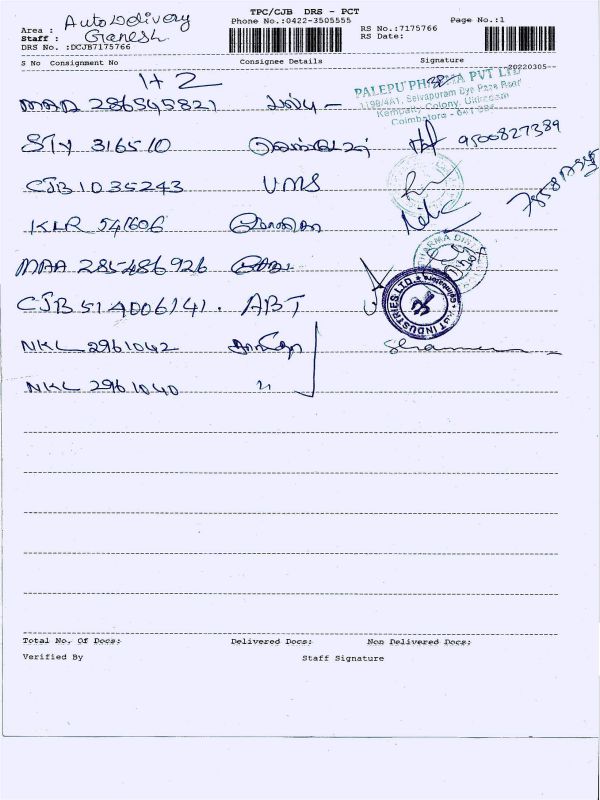 TPC/CJB DRS - PCT
Area : Auto Delivery
Phone No.:0422-3505555
Page No.:1
Staff : Ganesh
RS No.:7175766
DRS No. :DCJB7175766
RS Date:
S No Consignment No
Consignee Details
Signature
20220305
1+2
MAA 286545821
PALEPU PHARMA PVT LTD
1199/4A1, Selvapuram Bye Pass Road
Kempatty Colony, Ukkadam
Coimbatore - 641
STY 316510
9500827389
CJB 1035243 UMS
KLR 541606
MAA 285486926
CJB 514006141. ABT
ABT INDUSTRIES LTD.
NKL 2961042
NKL 2961040 "
Total No. Of Docs:
Delivered Docs:
Non Delivered Docs:
Verified By
Staff Signature